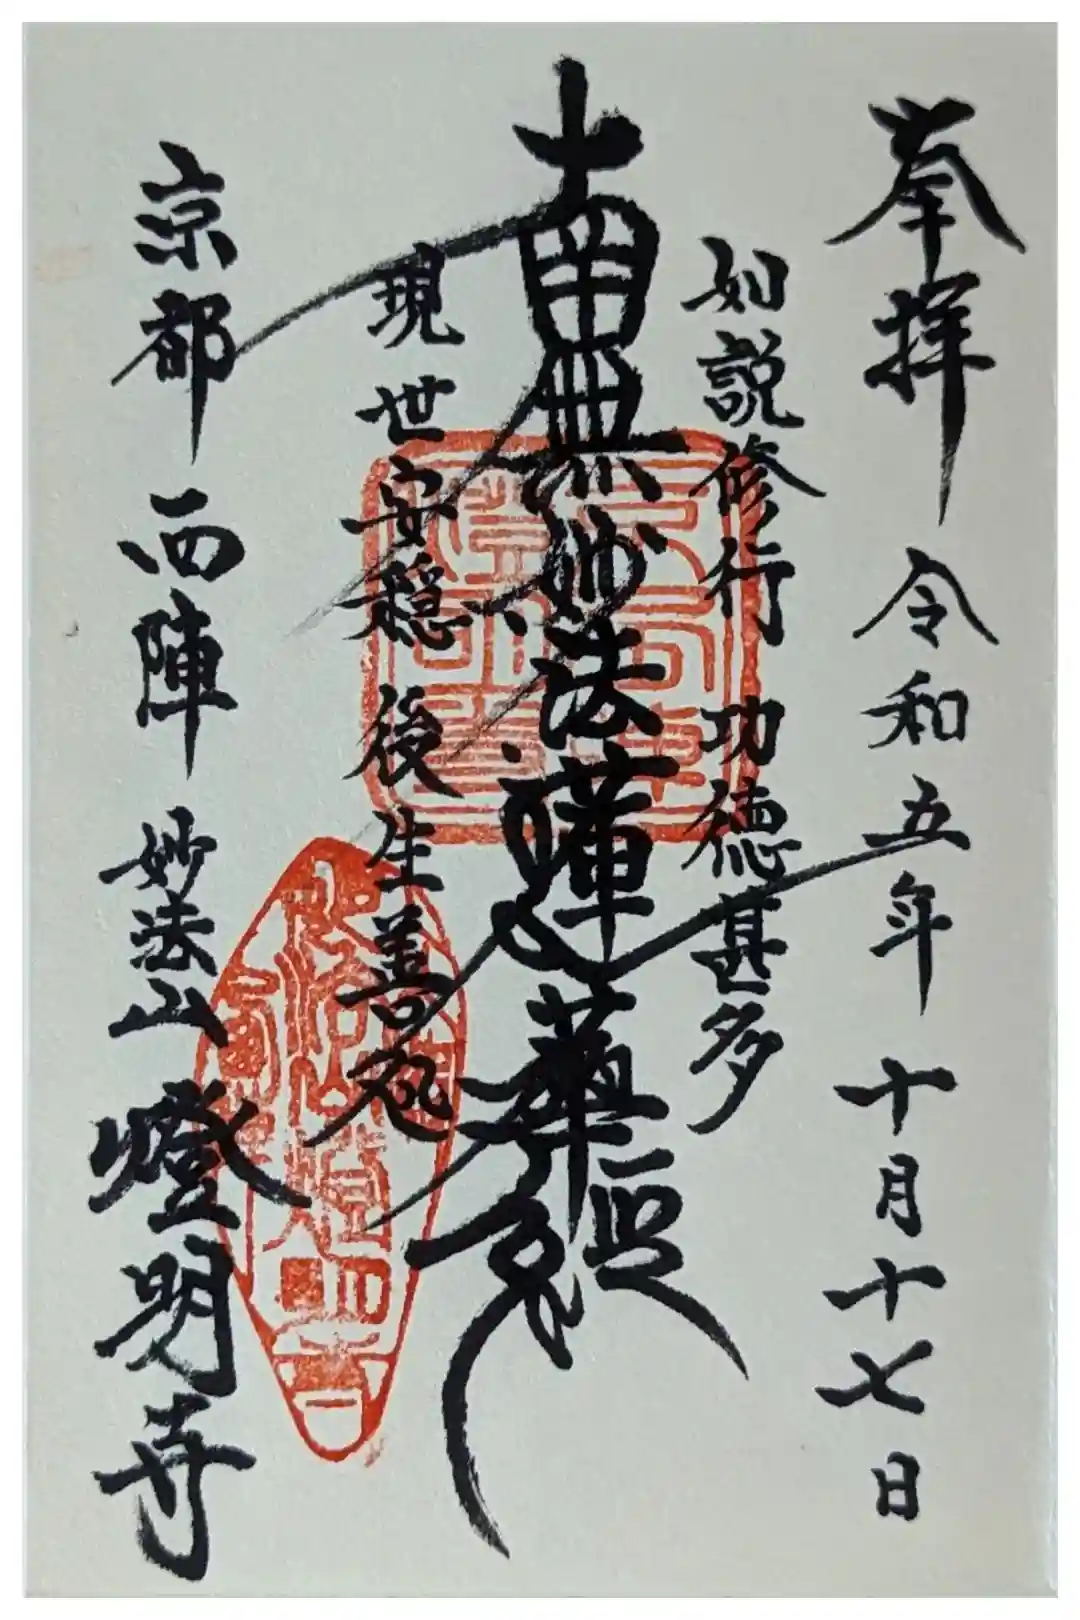 奉拝 令和五年 十月十七日
如説修行 功徳甚多
南無妙法蓮華経
現世安穏 後生善処
京都 西陣 妙法山 燈明寺